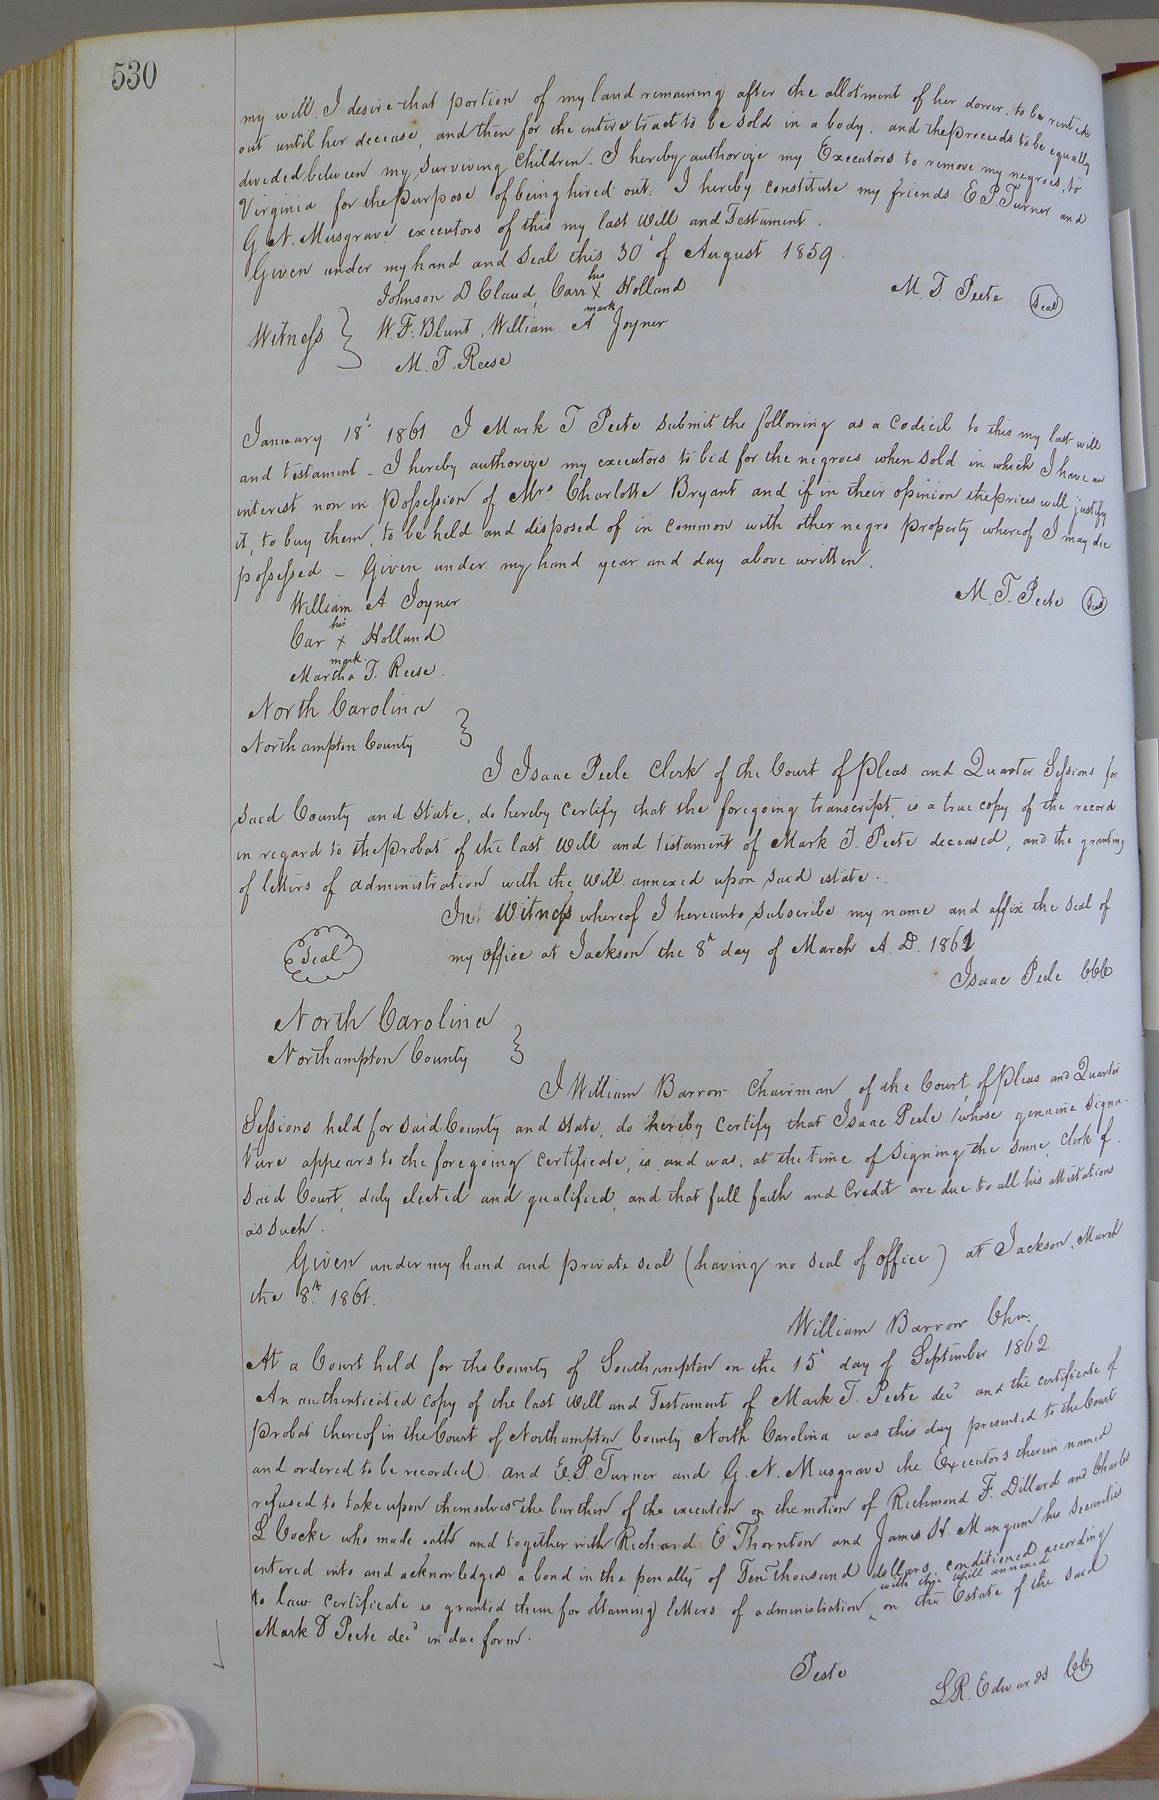 530
my will. I desire that portion of my land remaining after the allotment of her dower, to be rented
out until her decease, and then for the entire tract to be sold in a body, and the proceeds to be equally
divided between my surviving Children. I hereby authorize my Executors to remove my negroes, to
Virginia for the purpose of being hired out. I hereby constitute my friends E P Turner and
G N. Musgrave executors of this my last Will and Testament.
Given under my hand and seal this 30' of August 1859.
Johnson D Claud, Carr his X mark Holland
M. T. Peete (Seal)
Witness } W. F. Blunt, William A Joyner
M. T. Reese
January 18' 1861 I Mark T Peete submit the following as a Codicil to this my last will
and testament - I hereby authorize my executors to bid for the negroes when sold in which I have an
interest now in possession of Mrs. Charlotte Bryant and if in their opinion the prices will justify
it, to buy them, to be held and disposed of in common with other negro property whereof I may die
possessed - Given under my hand year and day above written.
William A Joyner
M. T. Peete (Seal)
Car his X mark Holland
Martha T. Reese.
North Carolina
Northampton County }
I Isaac Peele Clerk of the Court of Pleas and Quarter Sessions for
said County and State, do hereby certify that the foregoing transcript, is a true copy of the record
in regard to the probat of the last Will and testament of Mark T. Peete deceased, and the granting
of letters of administration with the Will annexed upon said estate.
In Witness whereof I hereunto subscribe my name and affix the seal of
(Seal) my office at Jackson the 8th day of March A. D. 1861
Isaac Peele CCC
North Carolina
Northampton County }
I William Barrow Chairman of the Court of Pleas and Quarter
Sessions held for said County and State, do hereby certify that Isaac Peele whose genuine signa-
ture appears to the foregoing certificate, is and was, at the time of signing the same, Clerk of
said Court, duly elected and qualified, and that full faith and credit are due to all his attestations
as such.
Given under my hand and private seal (having no seal of office) at Jackson, March
the 8th 1861.
William Barrow Chm.
At a Court held for the County of Southampton on the 15' day of September 1862
An authenticated copy of the last Will and Testament of Mark T. Peete decd and the certificate of
probat thereof in the Court of Northampton County North Carolina was this day presented to the Court
and ordered to be recorded. and E. P. Turner and G. N. Musgrave the Executors therein named
refused to take upon themselves the burthen of the execution on the motion of Richmond F. Dillard and Charles
L Cocke who made oath and together with Richard E Thornton and James H. Mangum his securities
entered into and acknowledged a bond in the penalty of Ten Thousand dollars, conditioned according
to law certificate is granted them for obtaining letters of administration with the will annexed on the Estate of the said
Mark T Peete decd in due form.
Teste
L.R. Edwards CC